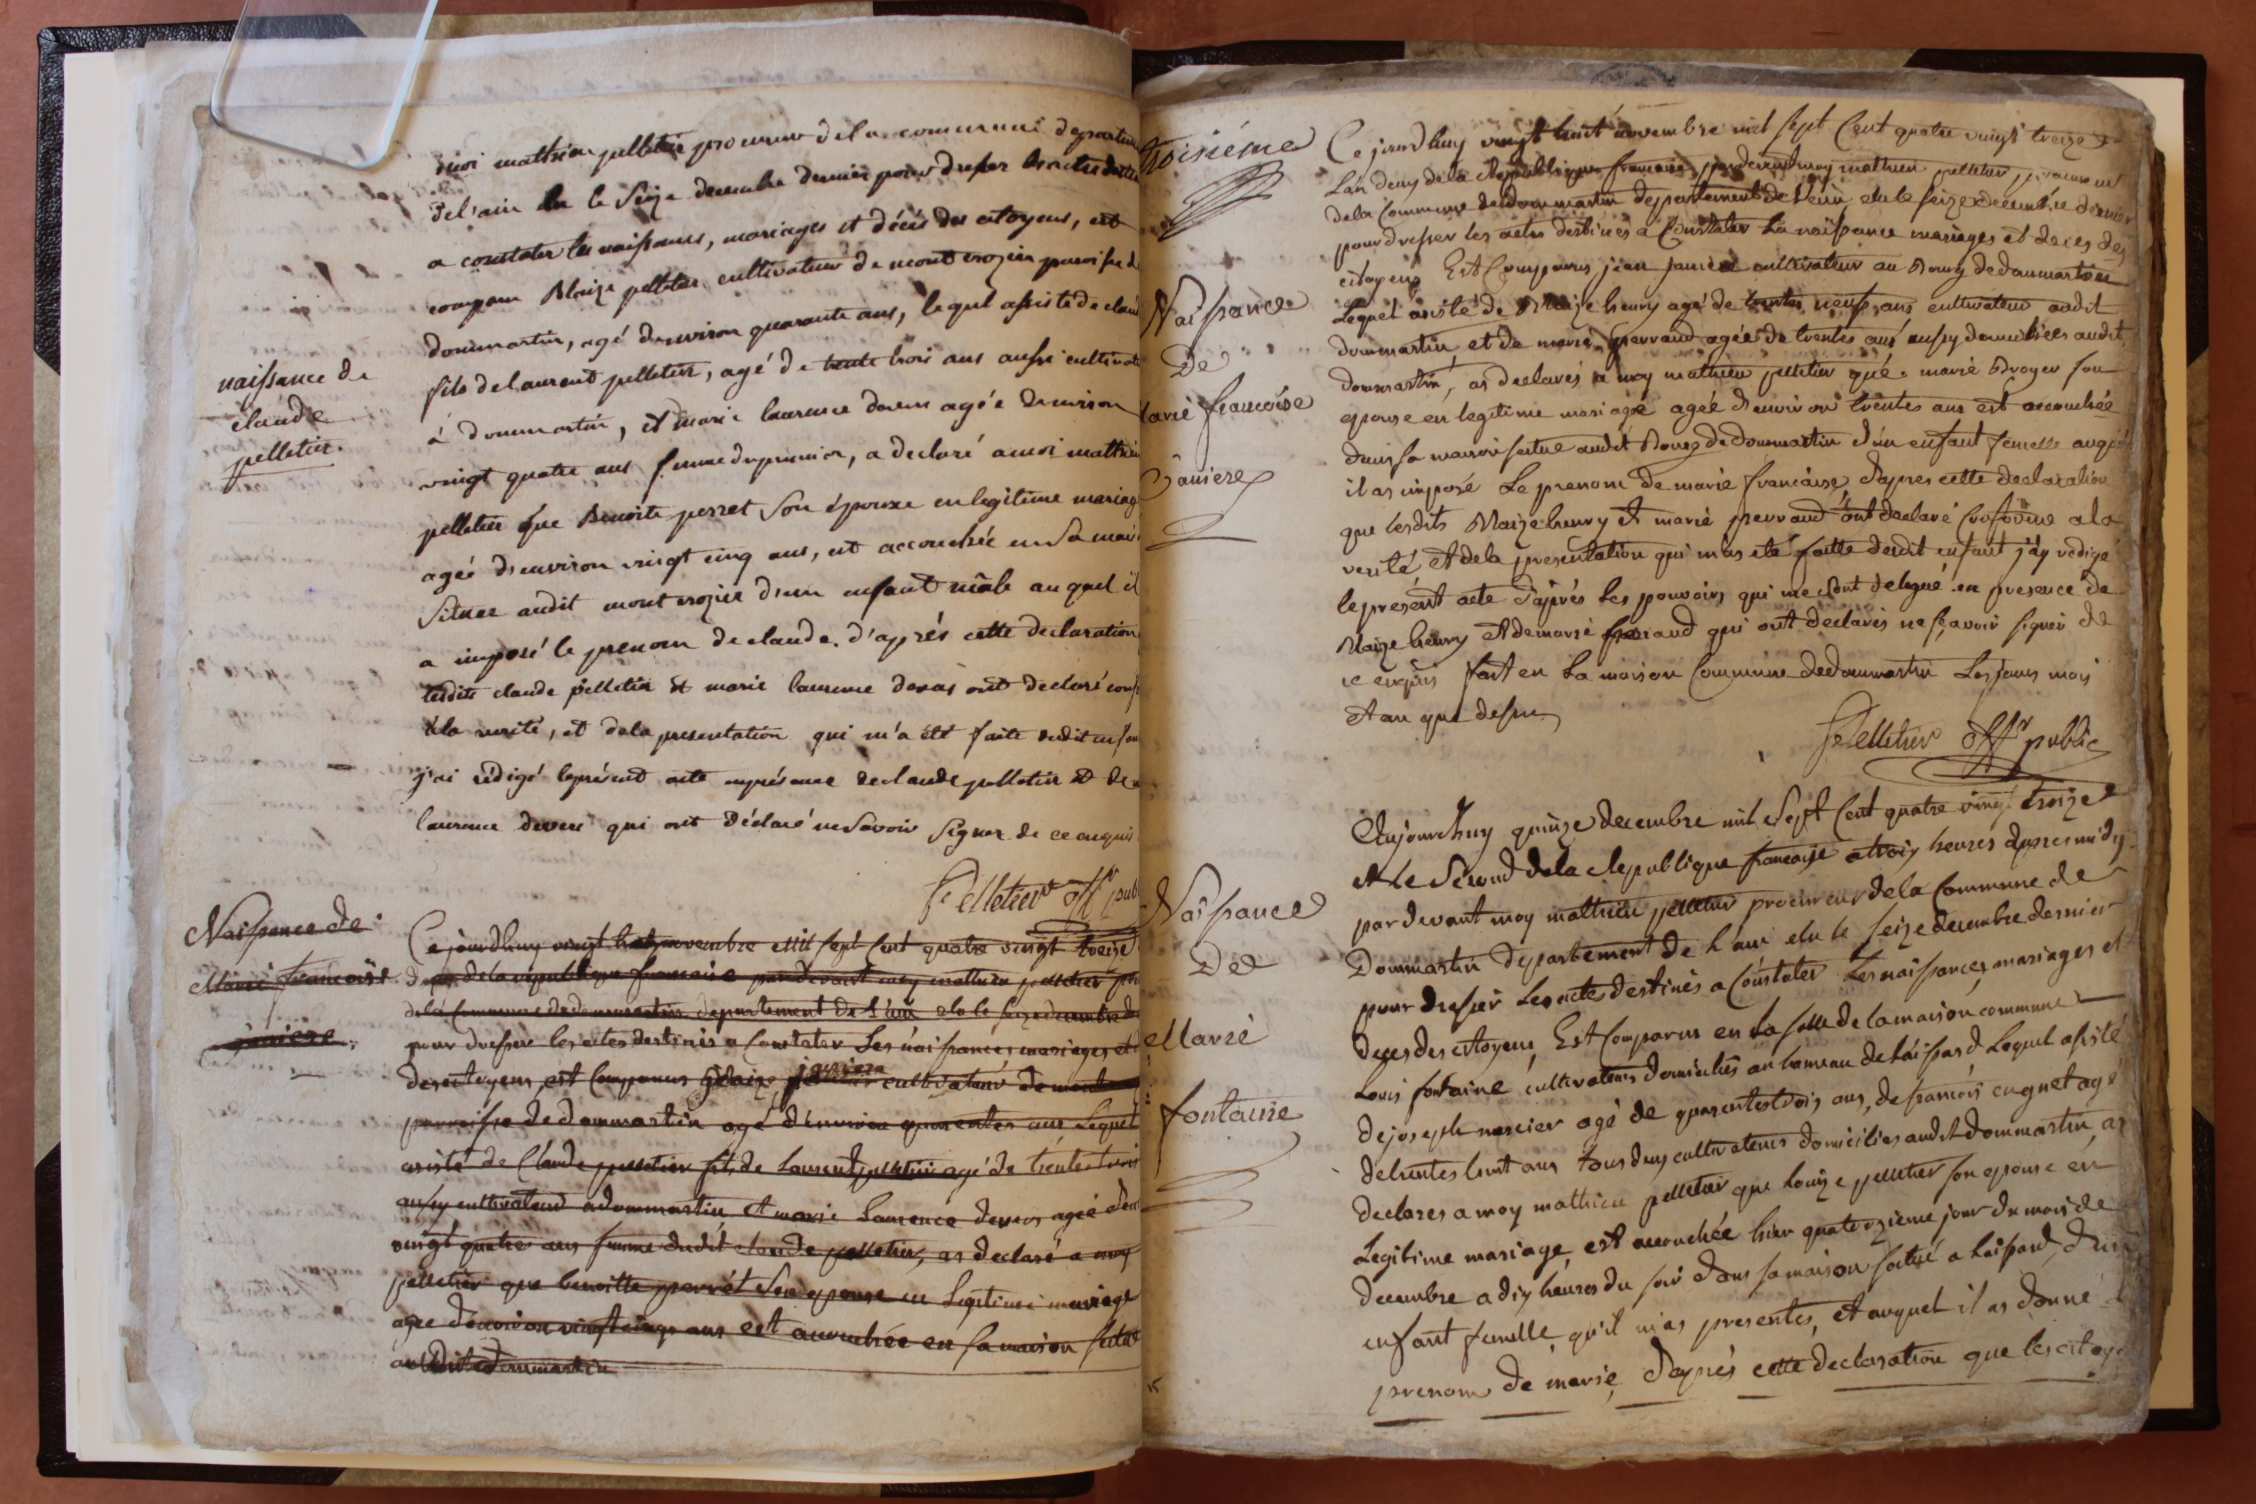 moi mathieu pelletier procureur de la commune departem
de l'ain elu le seize decembre dernier pour dresser les actes destin
a constater les naissances, mariages et décès des citoyens, est
comparu Blaize pelletier cultivateur de mont crozier paroisse d
dommartin, agé denviron quarante ans, lequel assisté de claud
naissance de
claude
pelletier.
fils de laurent pelletier, agé de trente trois ans aussi cultivate
à dommartin, et marie laurence agée denviron
vingt quatre ans femme du premier, a declaré a moi mathieu
pelletier que Benoite perret son épouse en legitime mariag
agée d'environ vingt cinq ans, est accouchée en sa mais
située audit mont crozier d'un enfant mâle auquel il
a imposé le prenom de claude. d'après cette declaration
lesdits claude pelletier et marie laurence ont declaré conf
à la verité, et de la presentation qui m'a été faite dudit enfan
j'ai rédigé le présent acte en présence de claude pelletier et de
laurence qui ont déclaré ne savoir signer de ce enquis
Pelletier Offr pub
Naissance de
Marie françoise
janiere
Ce jourdhuy vingt huit novembre mil sept cent quatre vingt treize
de la republique francaise pardevant moy mathieu pelletier pro
de la Commune de dommartin departement de l'ain elu le seize decembre de
pour dresser les actes destinés a Constater Les naissances mariages et d
des citoyens, est Comparus Blaize janiere cultivateur de mont
parroisse de dommartin agé d'environ quarantes ans Lequel
asisté de Claude pelletier fils de Laurent pelletier agé de trentes trois
aussy cultivateur a dommartin et marie Laurence agée d'en
vingt quatre ans femme dudit claude pelletier, as declaré a moy
pelletier que benoitte perrét Son epouse en Legitime mariage
agée d'environ vingt cinq ans est accouchée en sa maison situé
audit dommartin
troisiéme
Ce jourdhuy vingt huit novembre mil sept Cent quatre vingt treize
L'an deux de la Republique francaise, pardevant moy mathieu pelletier procureur
de la Commune de dommartin departement de l'ain elu le seize decembre dernier
pour dresser les actes destinés a Constater La naissance mariages et deces des
citoyens Est Comparus jean janiere cultivateur au Bourg de dommartin
Naissance
De
Marie françoise
Janiere
Lequel asisté de Blaize henry agé de trentes neufs ans cultivateur audit
dommartin et de marie perraud agée de trentes ans aussy domiciliées audit
dommartin, as declarés a moy mathieu pelletier que marie Broyer son
epouse en legitime mariage agée d'environ trentes ans est accouchée
dans sa maison situé audit Bourg de dommartin d'un enfant femelle auquel
il as imposé Le prenom de marie francaise, d'apres cette declaration
que lesdits Blaize henry et marie perraud ont declaré conforme a la
verité et de la presentation qui m'as eté faitte dudit enfant j'ay redigé
le present acte d'après les pouvoirs qui me sont delegué en presence de
Blaize henry et de marie perraud qui ont declarés ne sçavoir signér de
ce enquis fait en La maison Commune de dommartin Les jours mois
et an que dessus
Pelletier Offr public
Naissance
De
Marie
fontaine
Aujourdhuy quinze decembre mil sept Cent quatre vingt treize
et le Second de la Republique francaise a trois heures apres midy
pardevant moy mathieu pelletier procureur de la Commune de
Dommartin departement de L'ain elu le seize decembre dernier
pour dresser Les actes destinés a Constater Les naissances, mariages et
deces des citoyens, Est Comparus en La salle de la maison commune
Louis fontaine cultivateur domicilies au hameau de Laissard Lequel assisté
de joseph mercier agé de quarentestrois ans, de francois cugnet agé
de trentes huit ans tous deux cultivateurs domicilies audit dommartin, as
declares a moy mathieu pelletier que Louize pelletier son epouse en
Legitime mariage est accouchée hier quatorzieme jour du mois de
decembre a dix heures du soir dans sa maison situé a Laissard, d'un
enfant femelle, qu'il m'as presentés, et auquel il as donné
prenom de marie, d'après cette declaration que les citoy